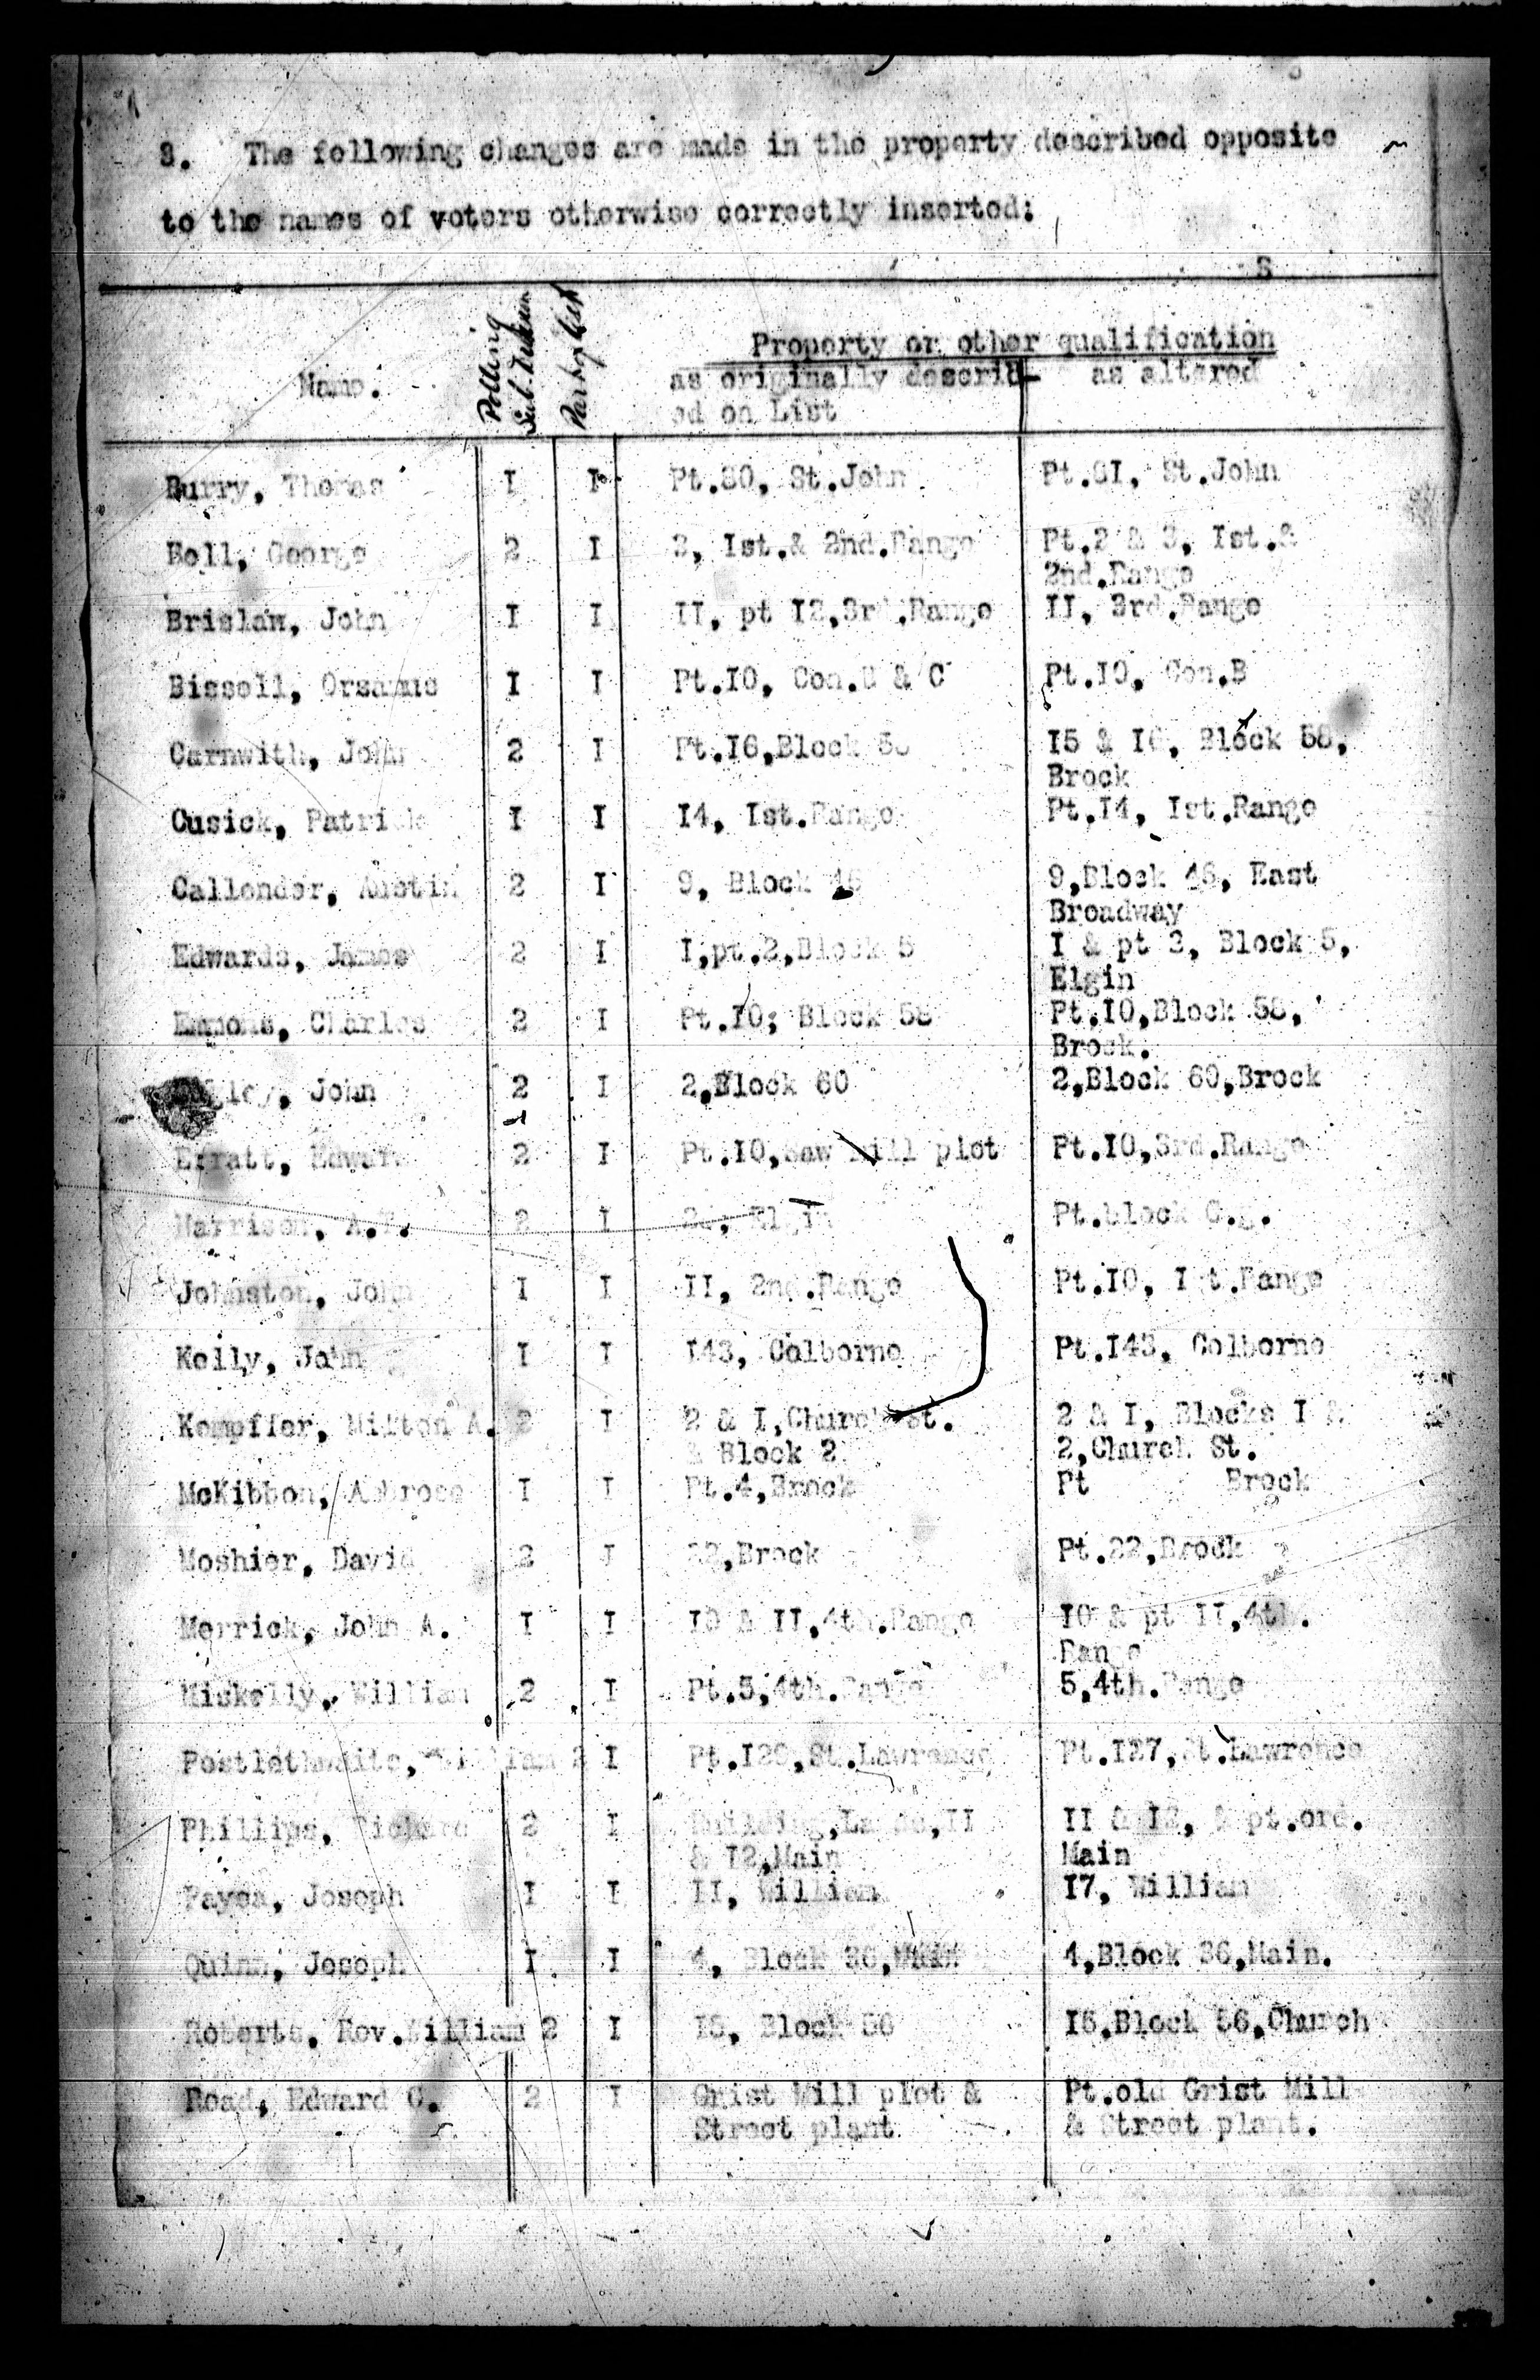 3. The following changes are made in the property described opposite
to the names of voters otherwise correctly inserted:
Name. Polling Sub. Division Part of List Property or other qualification
as originally describ- as altered
ed on List
Burry, Thomas I I Pt.30, St.John Pt.31, St.John
Bell, George 2 I 3, Ist.& 2nd.Range Pt.2 & 3, Ist.&
2nd.Range
Brislaw, John I I II, pt I2,3rd.Range II, 3rd.Range
Bissell, Orsamus I I Pt.I0, Con. & C Pt.I0, Con.B
Carnwith, John 2 I Pt.I6,Block I5 & I6, Block 58,
Brock
Cusick, Patrick I I I4, Ist.Range Pt.I4, Ist.Range
Callender, Austin 2 I 9, Block 45 9,Block 45, East
Broadway
Edwards, James 2 I I,pt.2,Block 5 I & pt 2, Block 5,
Elgin
Emmons, Charles 2 I Pt.I0, Block 58 Pt.I0,Block 58,
Brock.
John 2 I 2,Block 60 2,Block 60,Brock
Erratt, Edward 2 I Pt.I0,Saw Mill plot Pt.I0,3rd.Range
Harrison, 2 I Elgin Pt.block
Johnston, John I I II, 2nd.Range Pt.I0, Ist.Range
Kelly, John I I I43, Colborne Pt.I43, Colborne
Kempffer, Milton A. 2 I 2 & I,Church St. 2 & I, Blocks I &
& Block 2 2,Church St.
McKibbon, Ambrose I I Pt.4,Brock Pt Brock
Moshier, David 2 I 22,Brock Pt.22,Brock
Merrick, John A. I I I0 & II,4th.Range I0 & pt II,4th.
Range
Miskelly, William 2 I Pt.5,4th.Range 5,4th.Range
Postlethwaite, William 2 I St.Lawrence Pt.I27,St.Lawrence
Phillips, Richard 2 I Building,Lands,II II & I2, & pt.ord.
& I2,Main Main
Payea, Joseph I I II, William I7, William
Quinn, Joseph I I 4, Block 36,Main 4,Block 36,Main.
Roberts, Rev.William 2 I I5, Block 56 I5,Block 56,Church
Read, Edward C. 2 I Grist Mill plot & Pt.old Grist Mill
Street plant & Street plant.